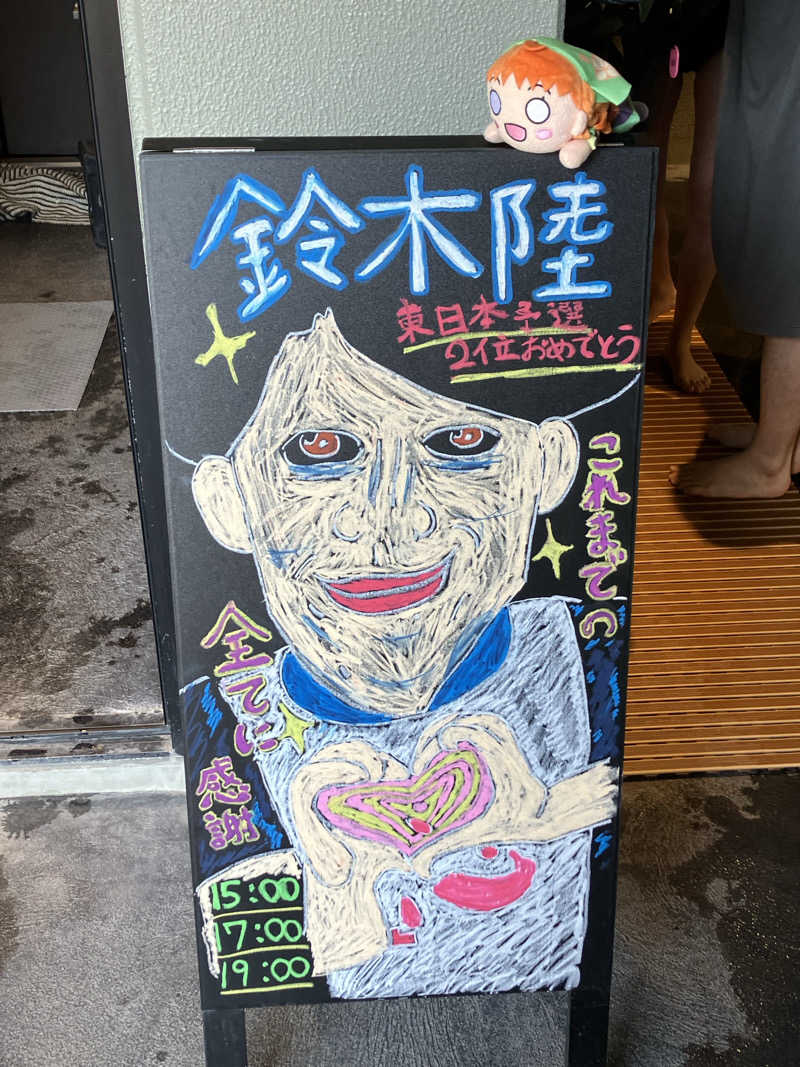 鈴木陸
東日本予選
2位おめでとう
これまでの
全てに
感謝
15:00
17:00
19:00